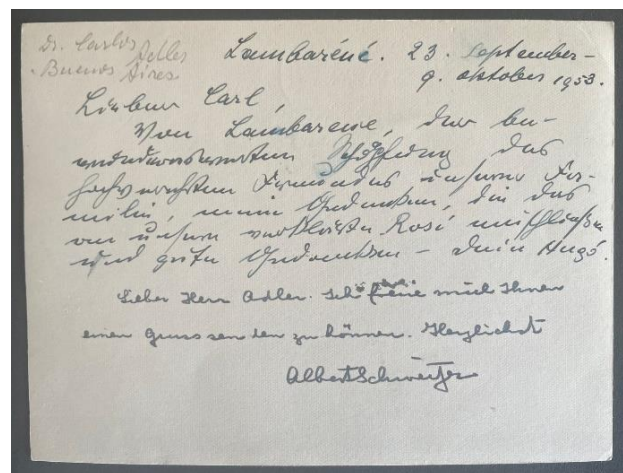 Dr. Carlos Adler
Buenos Aires
Lambaréné. 23. September –
9. Oktober 1953.
Lieber Carl,
Von Lambarene, der be-
wundernswerten Schöpfung des
hochverehrten Freundes unserer Fa-
milie, meine Gedanken, die das
an unsere verklärte Rosi mitschließen
und gute Gedanken – Dein Hugo.
Lieber Herr Adler. Ich freue mich Ihnen
einen Gruss senden zu können. Herzlichst
Albert Schweitzer